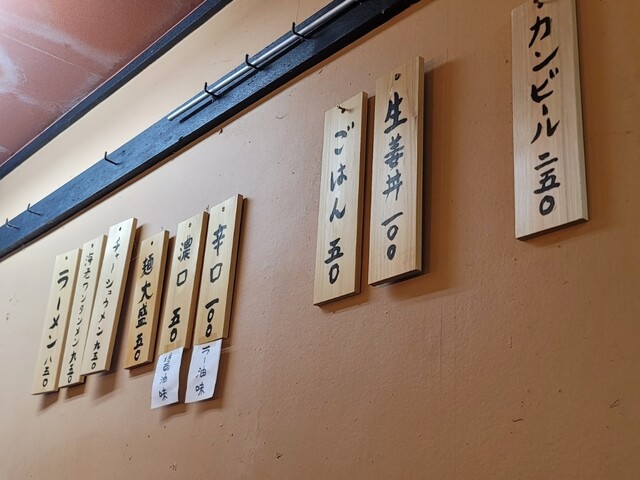 カンビール 二五〇
生姜丼 一〇〇
ごはん 五〇
辛口 一〇〇
ラー油味
濃口 五〇
醤油味
麺大盛 五〇
チャーシュウメン 九五〇
海老ワンタンメン 九五〇
ラーメン 八五〇